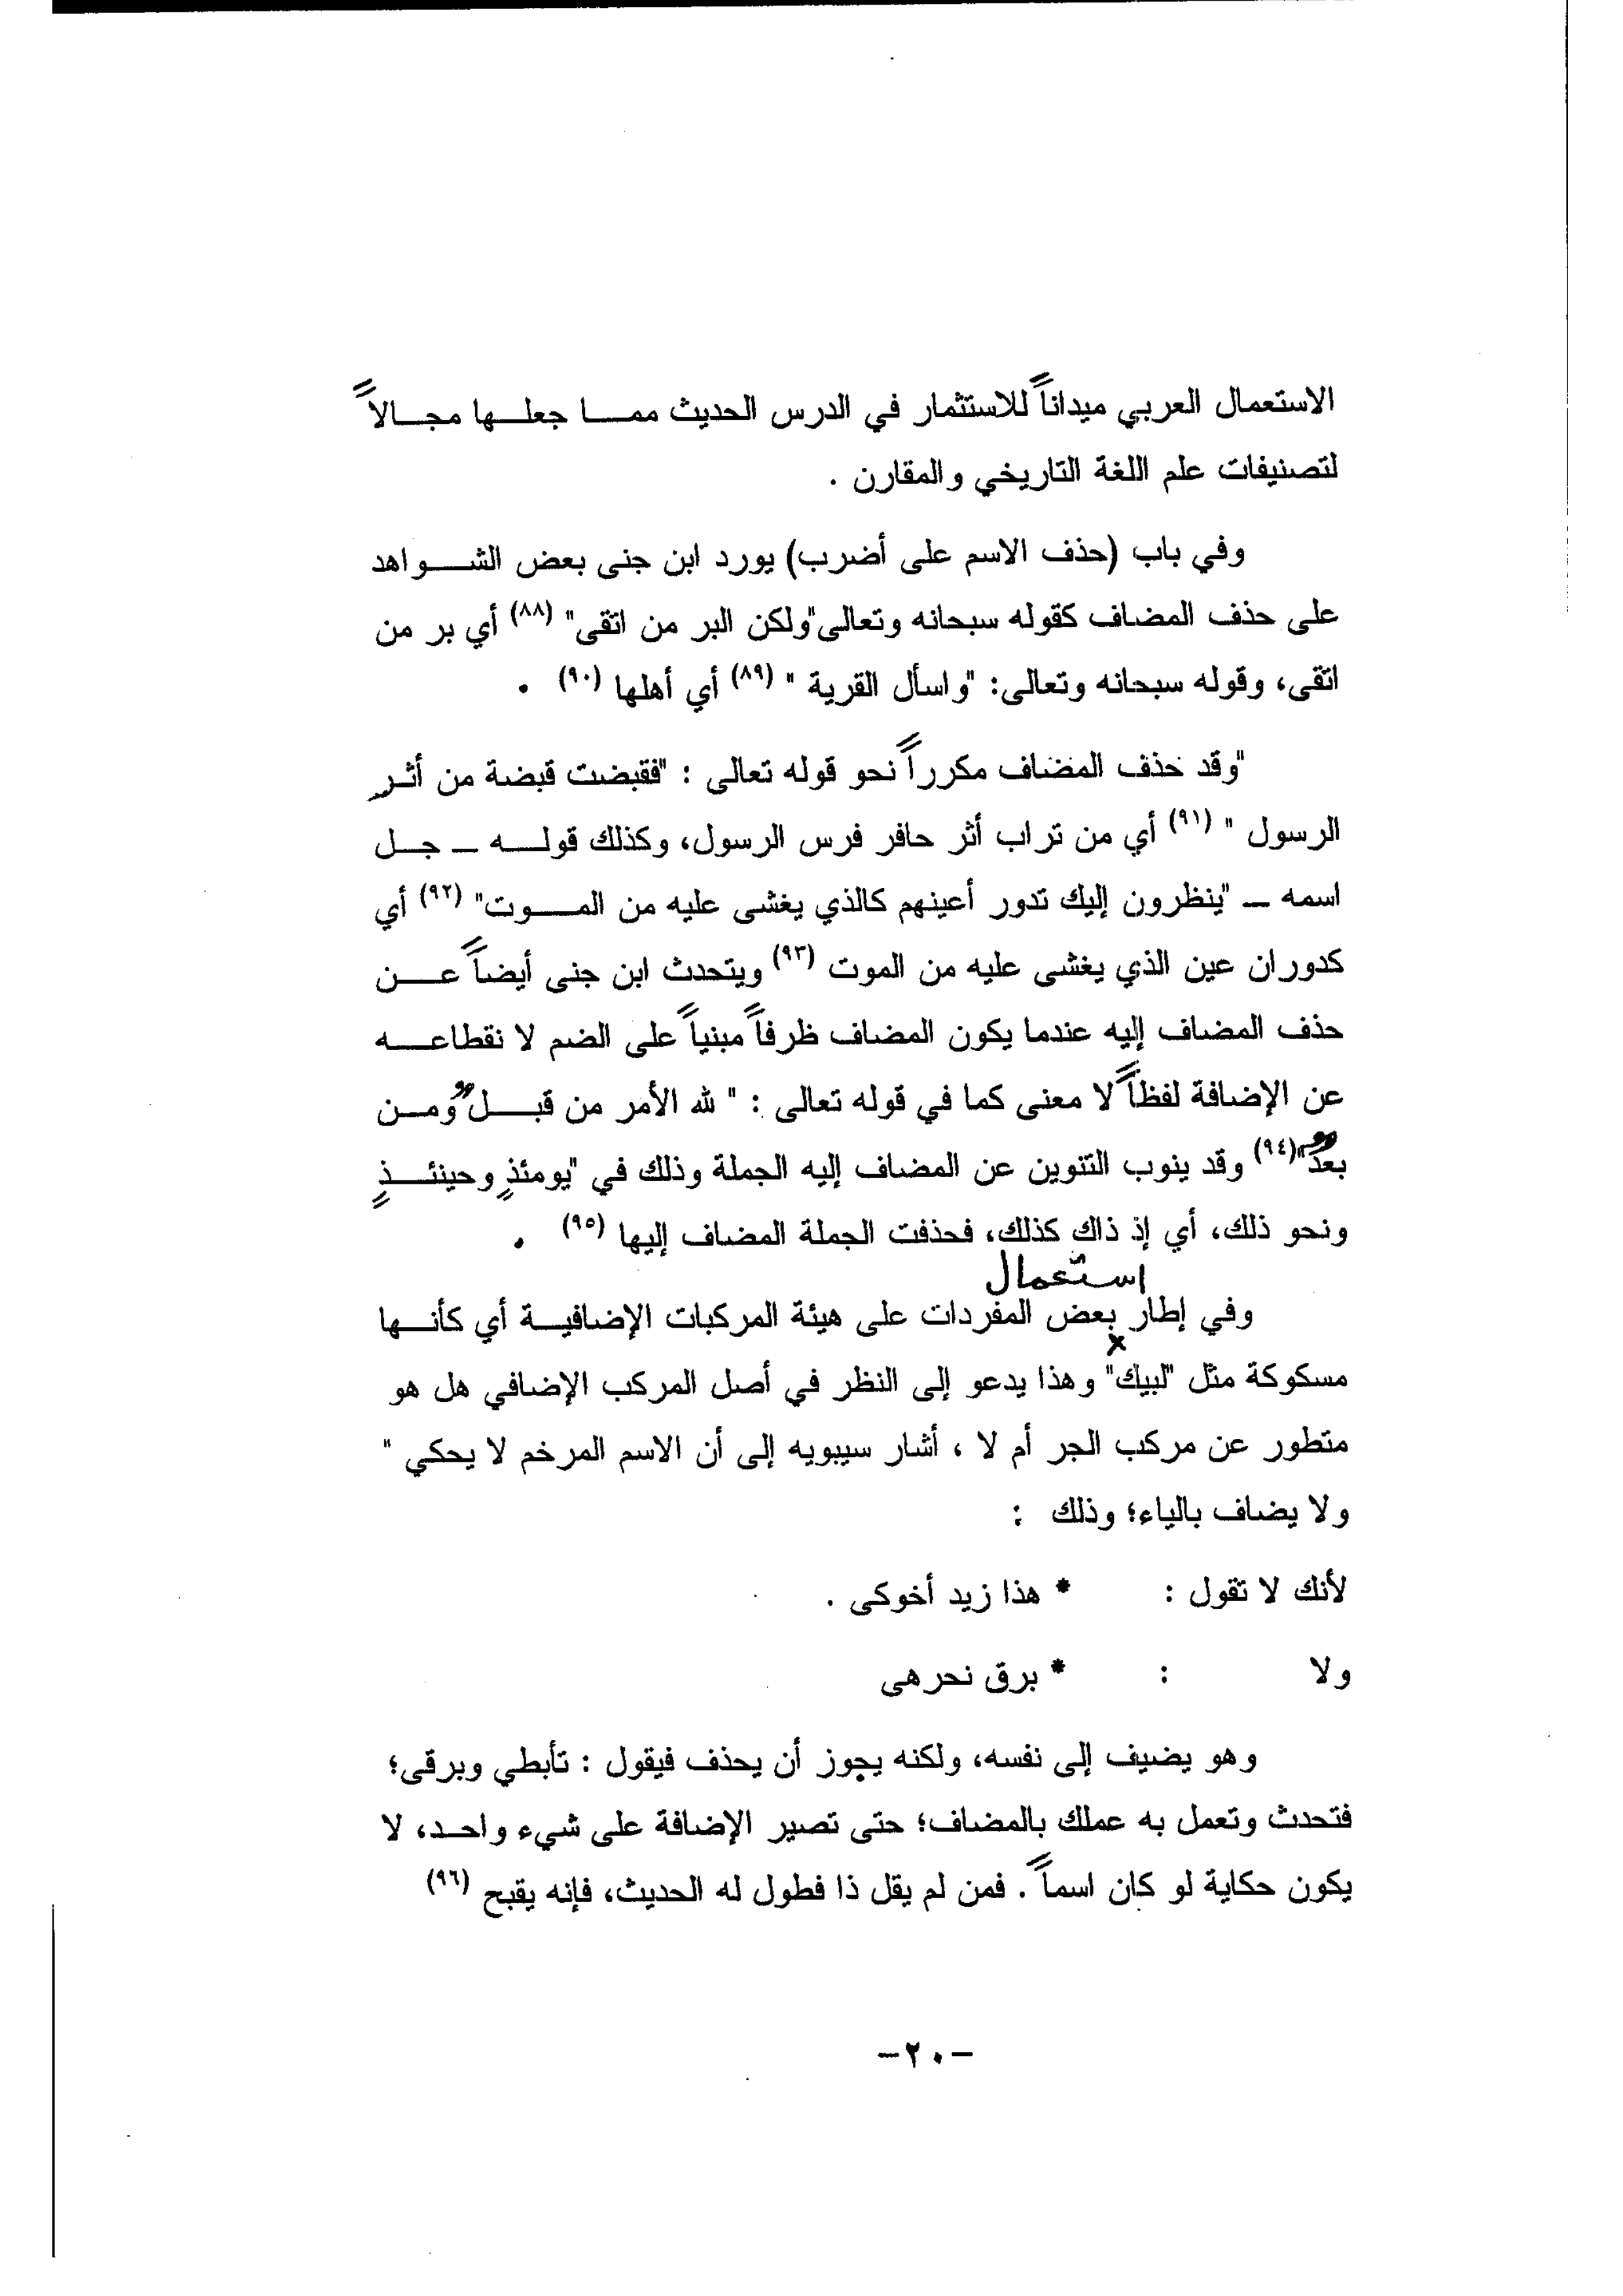 الاستعمال العربي ميداناً للاستثمار في الدرس الحديث مما جعلها مجالاً
لتصنيفات علم اللغة التاريخي والمقارن .
وفي باب (حذف الاسم على أضرب) يورد ابن جنى بعض الشواهد
على حذف المضاف كقوله سبحانه وتعالى"ولكن البر من اتقى" (٨٨) أي بر من
اتقى، وقوله سبحانه وتعالى: "واسأل القرية " (٨٩) أي أهلها (٩٠) .
"وقد حذف المضاف مكرراً نحو قوله تعالى : "فقبضت قبضة من أثر
الرسول " (٩١) أي من تراب أثر حافر فرس الرسول، وكذلك قوله – جل
اسمه – "ينظرون إليك تدور أعينهم كالذي يغشى عليه من الموت" (٩٢) أي
كدوران عين الذي يغشى عليه من الموت (٩٣) ويتحدث ابن جنى أيضاً عن
حذف المضاف إليه عندما يكون المضاف ظرفاً مبنياً على الضم لا نقطاعه
عن الإضافة لفظاً لا معنى كما في قوله تعالى : " لله الأمر من قبلُ ومن
بعدُ"(٩٤) وقد ينوب التنوين عن المضاف إليه الجملة وذلك في "يومئذٍ وحينئذٍ
ونحو ذلك، أي إذ ذاك كذلك، فحذفت الجملة المضاف إليها (٩٥) .
استعمال
وفي إطار بعض المفردات على هيئة المركبات الإضافية أي كأنها
مسكوكة مثل "لبيك" وهذا يدعو إلى النظر في أصل المركب الإضافي هل هو
متطور عن مركب الجر أم لا ، أشار سيبويه إلى أن الاسم المرخم لا يحكي "
ولا يضاف بالياء؛ وذلك :
لأنك لا تقول : * هذا زيد أخوكى .
ولا : * برق نحرهى
وهو يضيف إلى نفسه، ولكنه يجوز أن يحذف فيقول : تأبطي وبرقى؛
فتحدث وتعمل به عملك بالمضاف؛ حتى تصير الإضافة على شيء واحد، لا
يكون حكاية لو كان اسماً . فمن لم يقل ذا فطول له الحديث، فإنه يقبح (٩٦)
-٢٠-